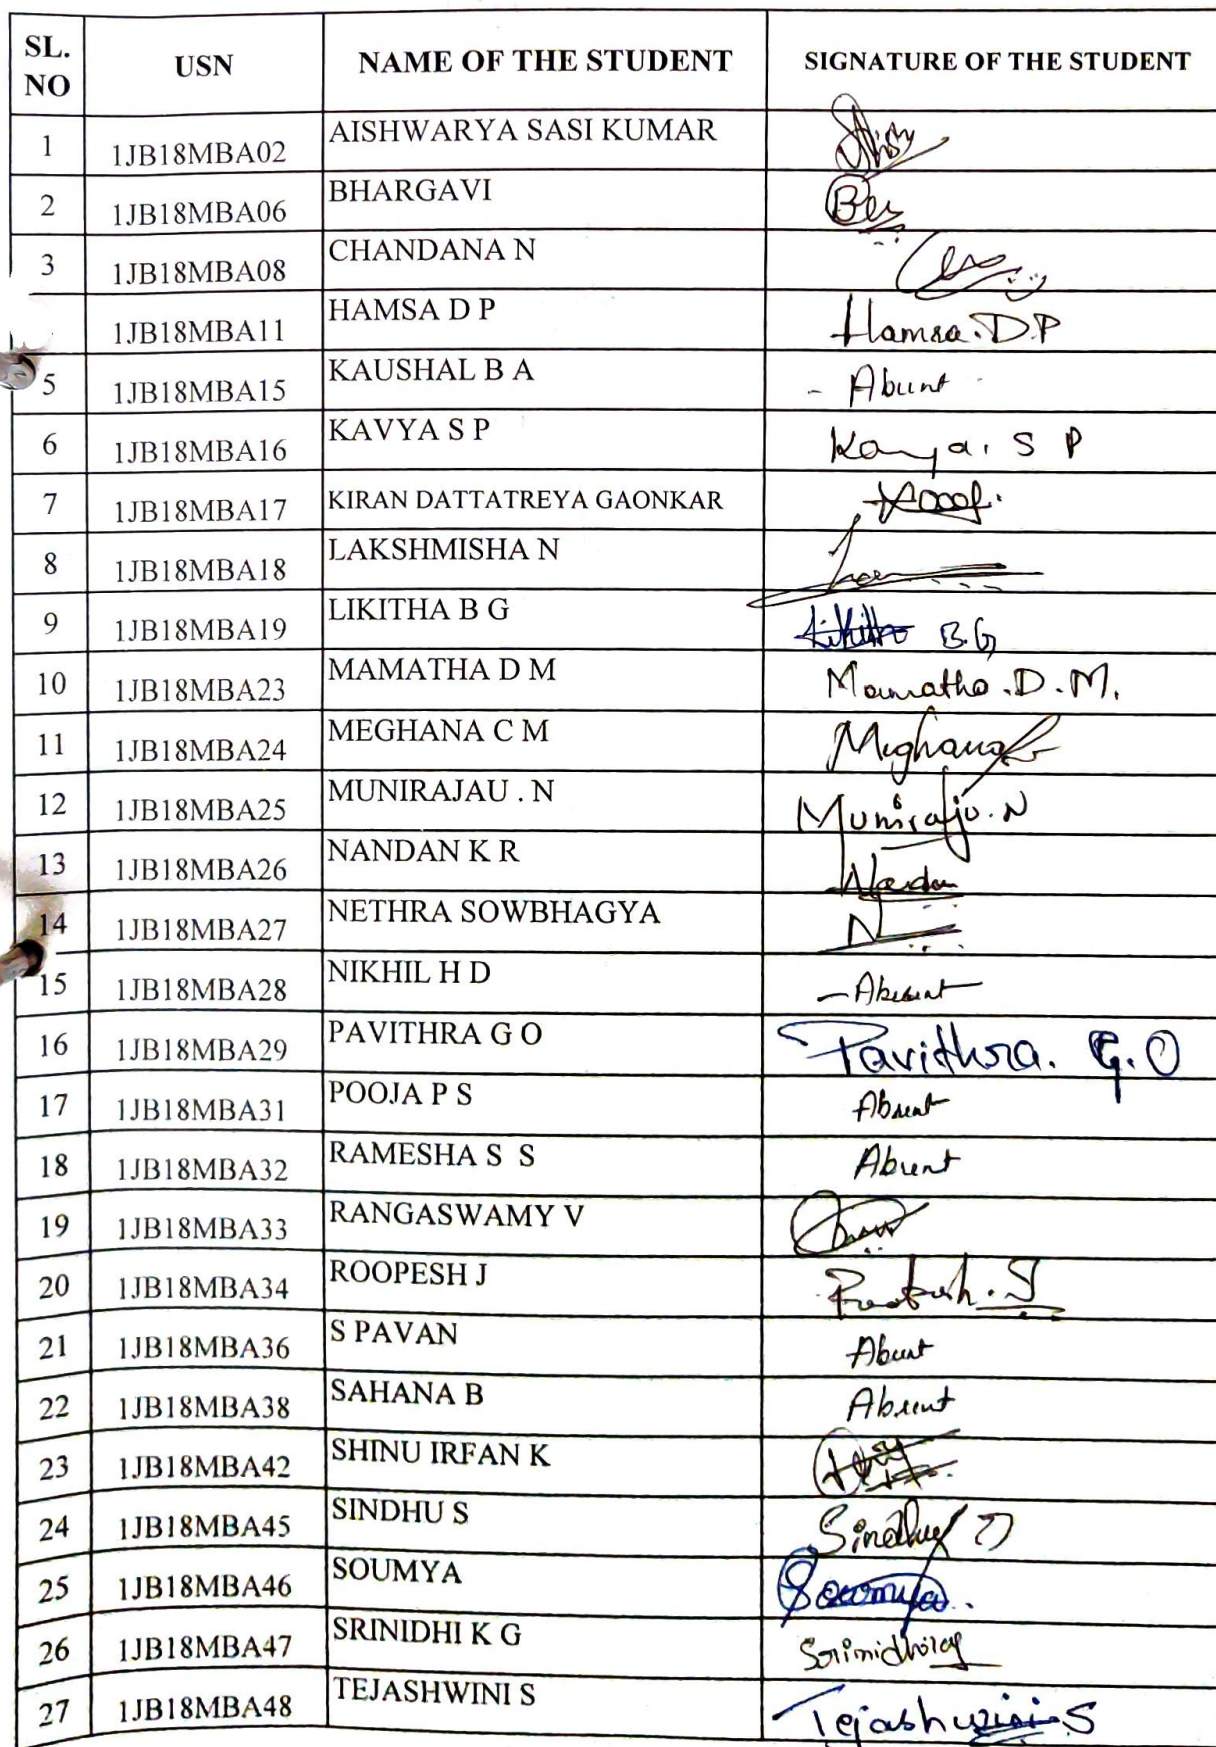 SL. NO USN NAME OF THE STUDENT SIGNATURE OF THE STUDENT
1 1JB18MBA02 AISHWARYA SASI KUMAR
2 1JB18MBA06 BHARGAVI
3 1JB18MBA08 CHANDANA N
1JB18MBA11 HAMSA D P Hamsa.D.P
5 1JB18MBA15 KAUSHAL B A - Absent
6 1JB18MBA16 KAVYA S P Kavya. S P
7 1JB18MBA17 KIRAN DATTATREYA GAONKAR
8 1JB18MBA18 LAKSHMISHA N
9 1JB18MBA19 LIKITHA B G Likitha B.G
10 1JB18MBA23 MAMATHA D M Mamatha.D.M.
11 1JB18MBA24 MEGHANA C M Meghana
12 1JB18MBA25 MUNIRAJAU . N Muniraju.N
13 1JB18MBA26 NANDAN K R Nandan
14 1JB18MBA27 NETHRA SOWBHAGYA N
15 1JB18MBA28 NIKHIL H D - Absent
16 1JB18MBA29 PAVITHRA G O Pavithra. G.O
17 1JB18MBA31 POOJA P S Absent
18 1JB18MBA32 RAMESHA S S Absent
19 1JB18MBA33 RANGASWAMY V
20 1JB18MBA34 ROOPESH J Roopesh.J
21 1JB18MBA36 S PAVAN Absent
22 1JB18MBA38 SAHANA B Absent
23 1JB18MBA42 SHINU IRFAN K
24 1JB18MBA45 SINDHU S Sindhu S
25 1JB18MBA46 SOUMYA Soumya.
26 1JB18MBA47 SRINIDHI K G
27 1JB18MBA48 TEJASHWINI S Tejashwini S